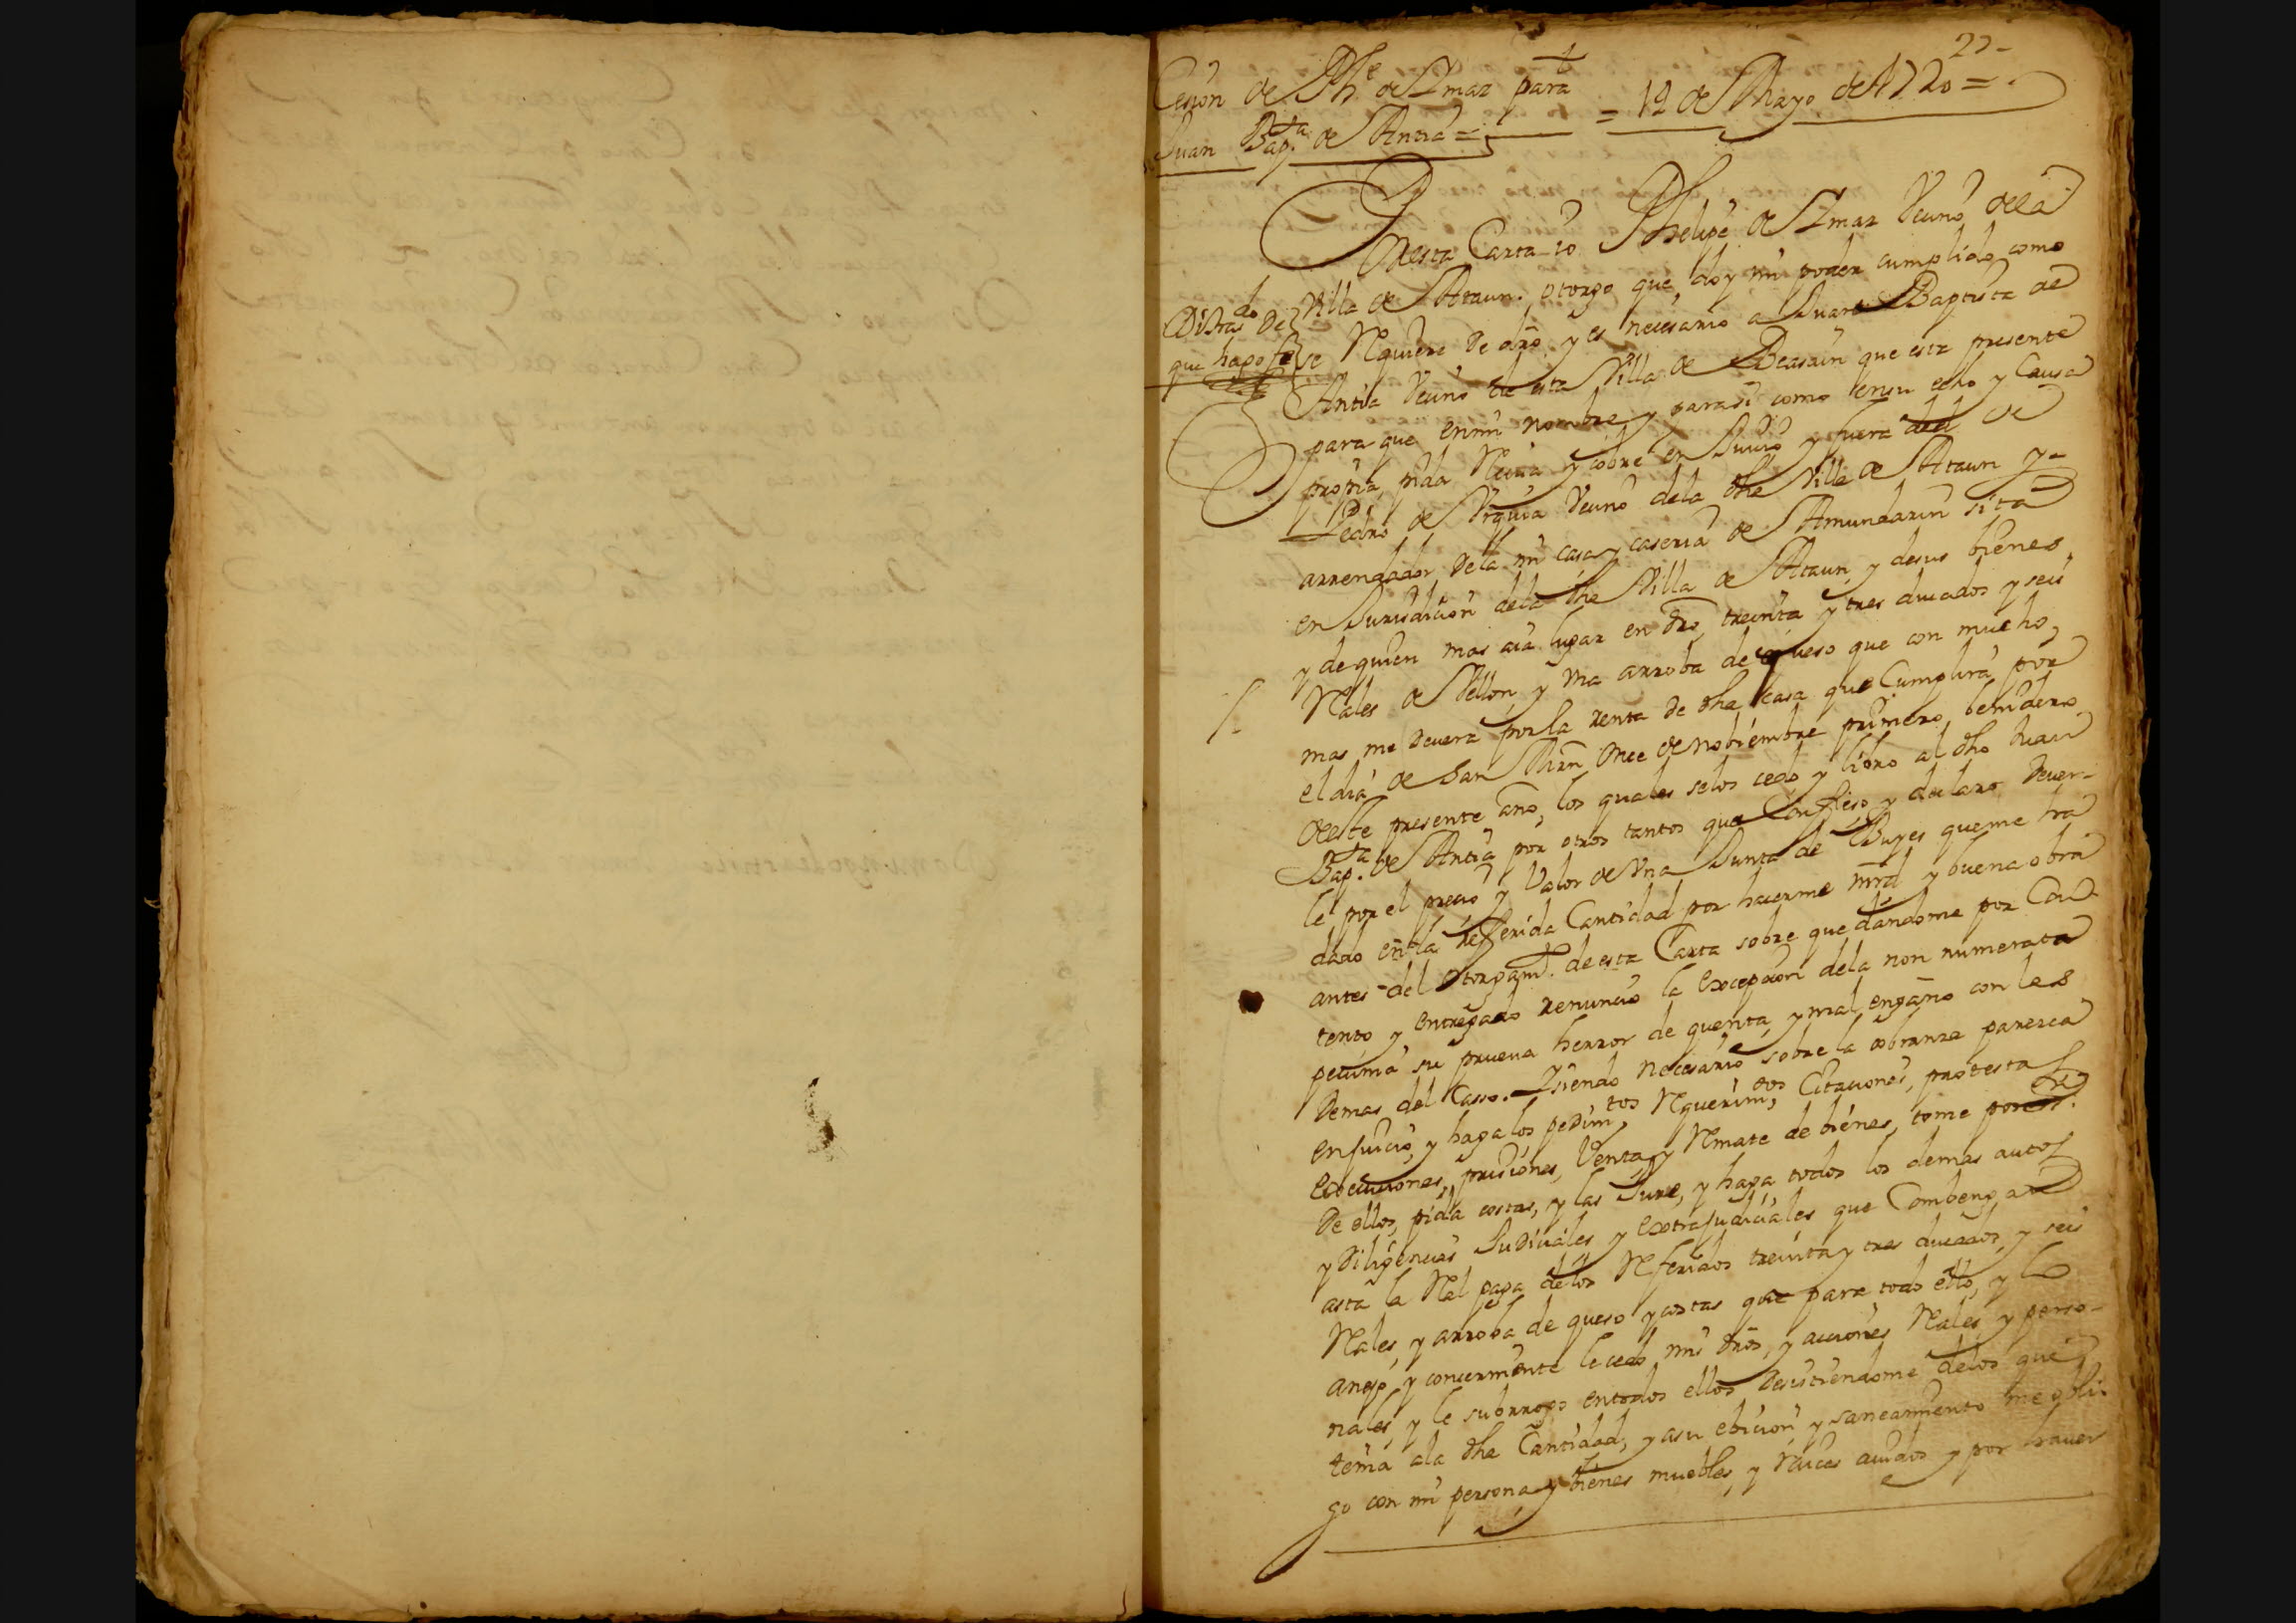 22
Cesion de Phe de Ymaz para
Juan Bapta de Antia = = 12 de Mayo de 1720 =
Por esta Carta io Phelipe de Ymaz Vecino de la
Villa de Ataun. otorgo que doy mi poder cumplido como
Di traslado de
que hago fe
se Requiere de dro, y es necesario a Juan Baptista de
Antia Vecino de esta Villa de Beasain que esta presente
para que en mi nombre y para si como en su echo y Causa
propria pida Reciva y cobre en Juicio y fuera del de
Pedro de Urquia Vecino de la dha Villa de Ataun y
arrendador de la mi casa y caseria de Amundarain sita
en Jurisdicion de la dha Villa de Ataun, y de sus bienes,
y de quien mas aia lugar en dro, treinta y tres ducados y seis
Rales de Vellon, y una arroba de queso que con mucho,
mas me devera por la renta de dha casa que Cumplira por
el dia de San Mrn Once de nobiembre primero, benidero
de este presente año, los quales selos cedo y libro al dho Juan
Bapta de Antia por otros tantos que Confieso y declaro Dever-
le por el precio y Valor de Una Junta de Buyes que me ha
dado en la referida Cantidad por hacerme mrd y buena obra
antes del otorgamto de esta Carta sobre que dandome por Con-
tento y entregado renuncio la Excepcion de la non numerata
pecunia su prueva herror de quenta y mal engaño con les
Demas del Casso. Y siendo necesario sobre la cobranza paresca
en juicio, y haga los pedimtos, Requerimtos, Citaciones, protestas
Execuciones, prisiones, Ventas y Remate de bienes, tome posesn
de ellos, pida costas, y las Jure, y haga todos los demas autos
y Diligencias Judiciales y Extrajudiciales que Combengan
asta la Ral paga de los Referidos treinta y tres ducados, y seis
Rales, y arroba de queso y costas que para todo ello, y lo
anejo y concerniente le cedo mis dros, y acciones Rales y perso-
nales, y le subrrogo en todos ellos Desistiendome de los que
tenia a la dha Cantidad, y a su ebicion y saneamiento me obli-
go con mi persona y bienes muebles, y Raices avidos y por haver